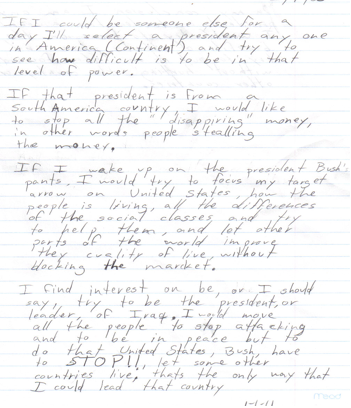 IF I could be someone else for a
day I'll select a president any one
in America (Continent), and try to
see how difficult is to be in that
level of power.
IF that president is from a
South America country, I would like
to stop all the "disappiring" money,
in other words people stealling
the money.
IF I wake up on the president Bush's
pants, I would try to focus my target
arrow on United States, how the
people is living, all the differences
of the social classes and try
to help them, and lot other
parts of the world improve
they cuality of live, without
blocking the market.
I find interest on be, or I should
say, try to be the president, or
leader, of Iraq. I would move
all the people to stop attacking
and to be in peace but to
do that United States, Bush, have
to STOP!!, let some other
countries live, thats the only way that
I could lead that country
mead